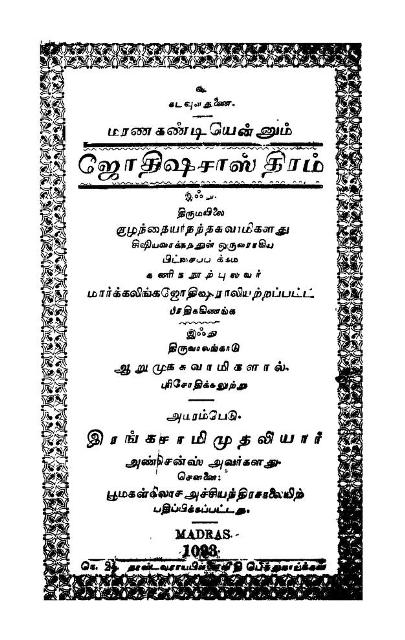 உ
கடவுள் துணை.
மரணகண்டியென்னும்
ஜோதிஷசாஸ்திரம்
இஃது
திருமயிலை
குழந்தையாநந்தசுவாமிகளது
சிஷியவர்க்கத்துள் ஒருவராகிய
கணிகநூற்புலவர்
மார்க்கலிங்கஜோதிஷராலியற்றப்பட்ட
பிரதிக்கிணங்க
இஃது
திருவாலங்காடு
ஆறுமுகசுவாமிகளால்
புரிசோதிக்கலுற்று
அயரம்பேடு
இரங்கசாமிமுதலியார்
அண்சென்ஸ் அவர்களது
சென்னை:
பூமகள்விலோசஅச்சியந்திரசாலையிற்
பதிப்பிக்கப்பட்டது.
MADRAS.